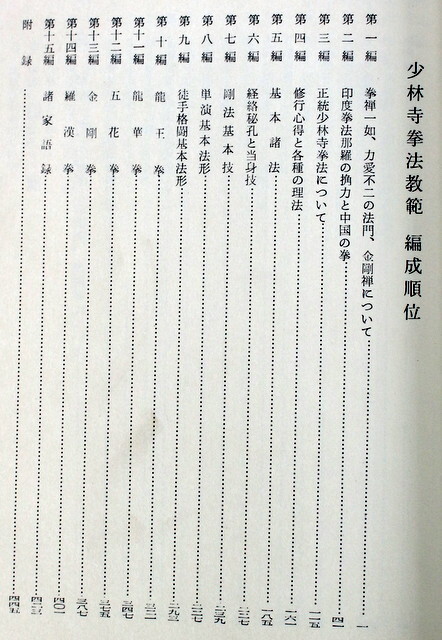 少林寺拳法教範 編成順位
第一編 拳禅一如、力愛不二の法門、金剛禅について 一
第二編 印度拳法那羅の捔力と中国の拳 四一
第三編 正統少林寺拳法について
第四編 修行心得と各種の理法 一六一
第五編 基本諸法 一八五
第六編 経絡秘孔と当身技
第七編 剛法基本技
第八編 単演基本法形
第九編 徒手格闘基本法形 二九三
第十編 龍王拳 三二一
第十一編 龍華拳 三四七
第十二編 五花拳 三七五
第十三編 金剛拳 三八七
第十四編 羅漢拳 四〇一
第十五編 諸家語録 四二三
附録 四四五